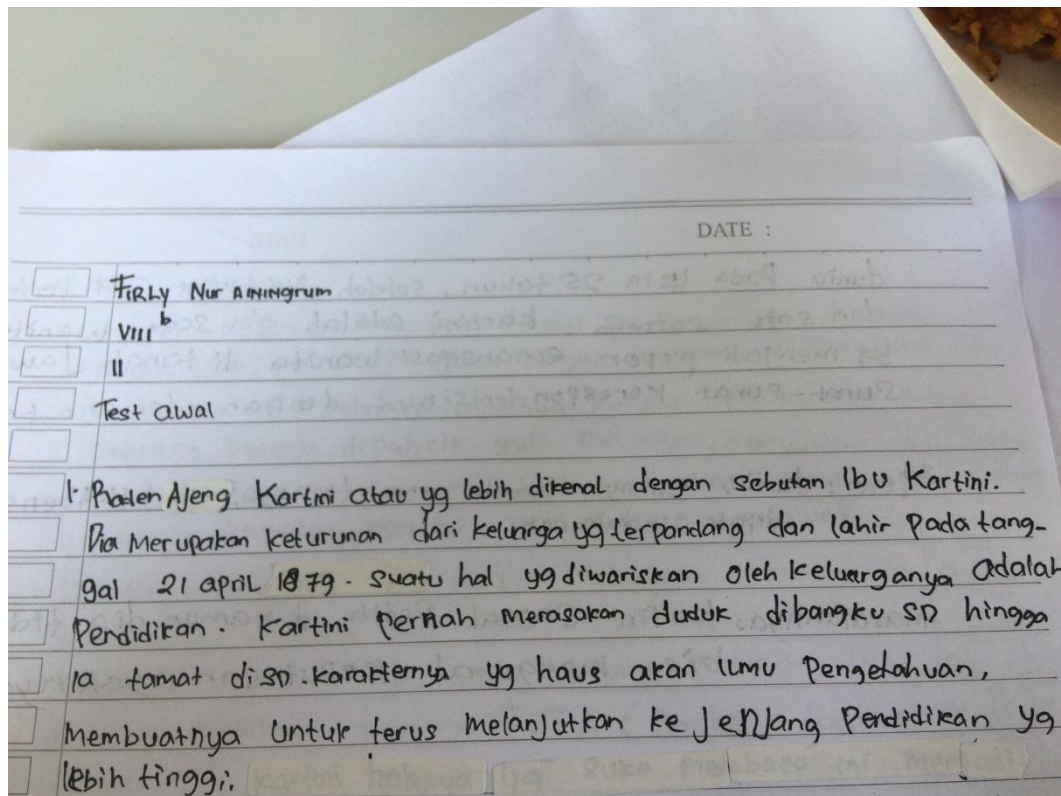 DATE :
FIRLY Nur AiNiNgrum
VIII b
II
Test awal
1. Raden Ajeng Kartini atau yg lebih dikenal dengan sebutan Ibu Kartini.
Dia Merupakan keturunan dari keluarga yg terpandang dan lahir Pada tang-
gal 21 april 1879. suatu hal yg diwariskan oleh keluarganya adalah
Pendidikan. Kartini pernah merasakan duduk dibangku SD hingga
ia tamat di SD. karakternya yg haus akan ilmu Pengetahuan,
Membuatnya untuk terus Melanjutkan ke Jenjang Pendidikan yg
lebih tinggi.